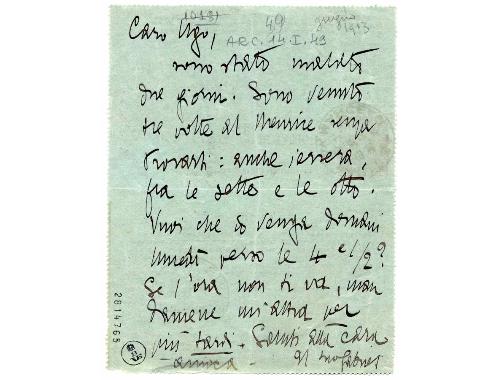 (1013)
49
giugno
1913
ARC. 14. I. 49
Caro Ugo,
sono stato malato
due giorni. Sono venuto
tre volte al Meurice senza
trovarti: anche iersera,
fra le sette e le otto.
Vuoi che io venga domani
lunedì verso le 4 e 1/2?
Se l'ora non ti va, man
damene un'altra per
più tardi. Saluti alla cara
amica.
Il tuo Gabriel
2814763